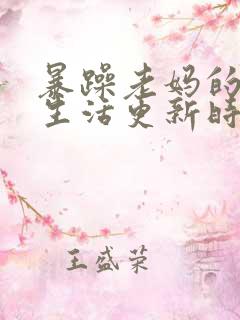 暴躁老妈的
生活更新时
王盛荣